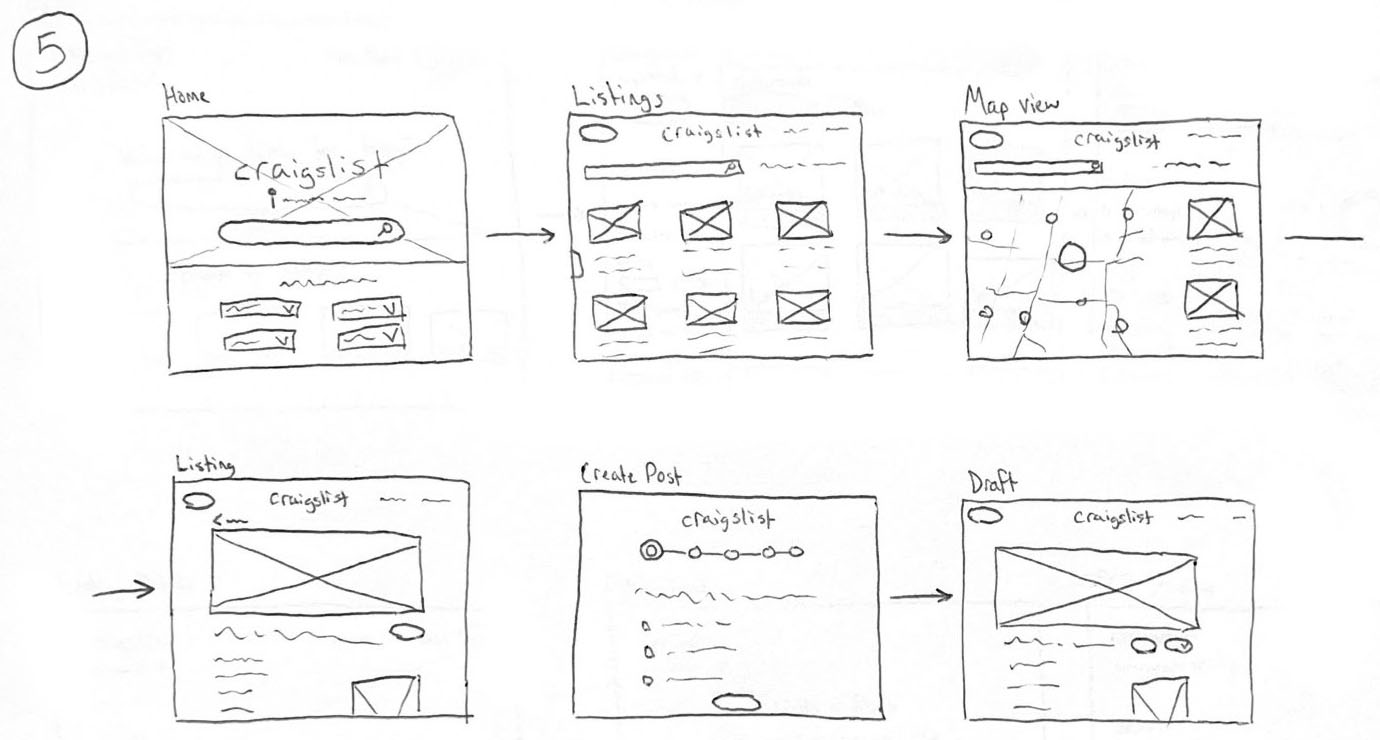 5
Home
craigslist
Listings
craigslist
Map view
craigslist
Listing
craigslist
Create Post
craigslist
Draft
craigslist